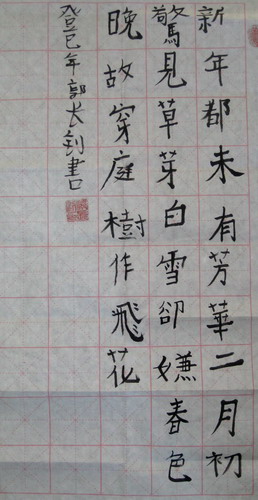 新年都未有芳華二月初
驚見草芽白雪卻嫌春色
晚故穿庭樹作飛花
癸巳年郭大釗書